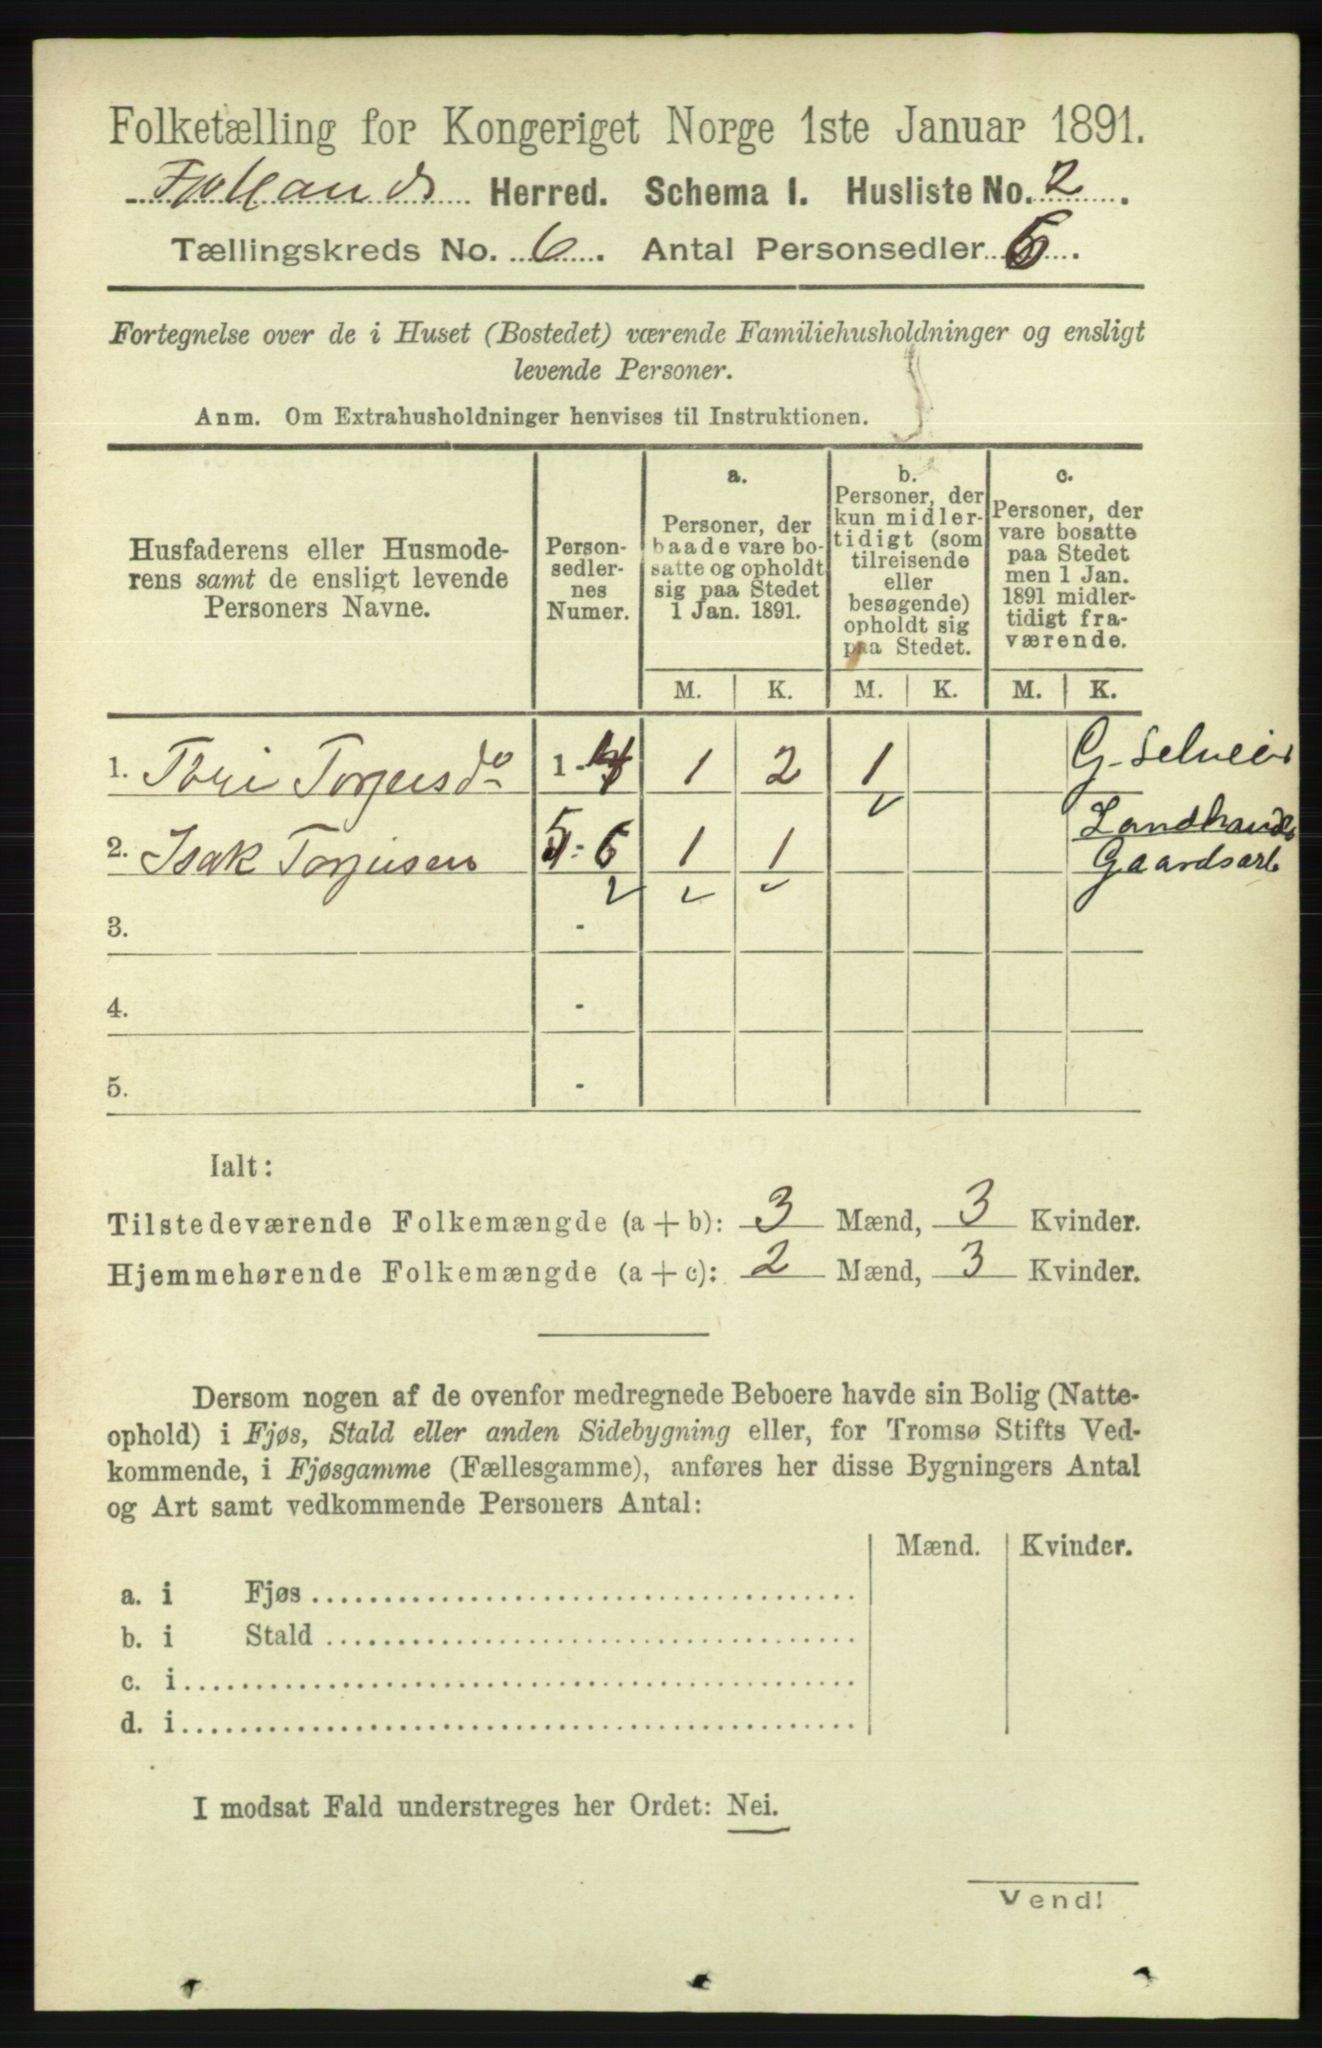 Folketælling for Kongeriget Norge 1ste Januar 1891.
Fjotlands Herred. Schema I. Husliste No. 2.
Tællingskreds No. 6. Antal Personsedler 6.
Fortegnelse over de i Huset (Bostedet) værende Familiehusholdninger og ensligt
levende Personer.
Anm. Om Extrahusholdninger henvises til Instruktionen.
Husfaderens eller Husmode-
rens samt de ensligt levende
Personers Navne.
Person-
sedler-
nes
Numer.
a.
Personer, der
baade vare bo-
satte og opholdt
sig paa Stedet
1 Jan. 1891.
b.
Personer, der
kun midler-
tidigt (som
tilreisende
eller
besøgende)
opholdt sig
paa Stedet.
c.
Personer, der
vare bosatte
paa Stedet
men 1 Jan.
1891 midler-
tidigt fra-
værende.
M. K. M. K. M. K.
1. Tori Torjusdo 1-4 1 2 1 G. Selveier
2. Isak Torjusen 5-6 1 1 Landhand
Gaardsarb
3. -
4. -
5. -
Ialt:
Tilstedeværende Folkemængde (a + b): 3 Mænd, 3 Kvinder.
Hjemmehørende Folkemængde (a + c): 2 Mænd, 3 Kvinder.
Dersom nogen af de ovenfor medregnede Beboere havde sin Bolig (Natte-
ophold) i Fjøs, Stald eller anden Sidebygning eller, for Tromsø Stifts Ved-
kommende, i Fjøsgamme (Fællesgamme), anføres her disse Bygningers Antal
og Art samt vedkommende Personers Antal:
Mænd. Kvinder.
a. i Fjøs
b. i Stald
c. i
d. i
I modsat Fald understreges her Ordet: Nei.
Vend!